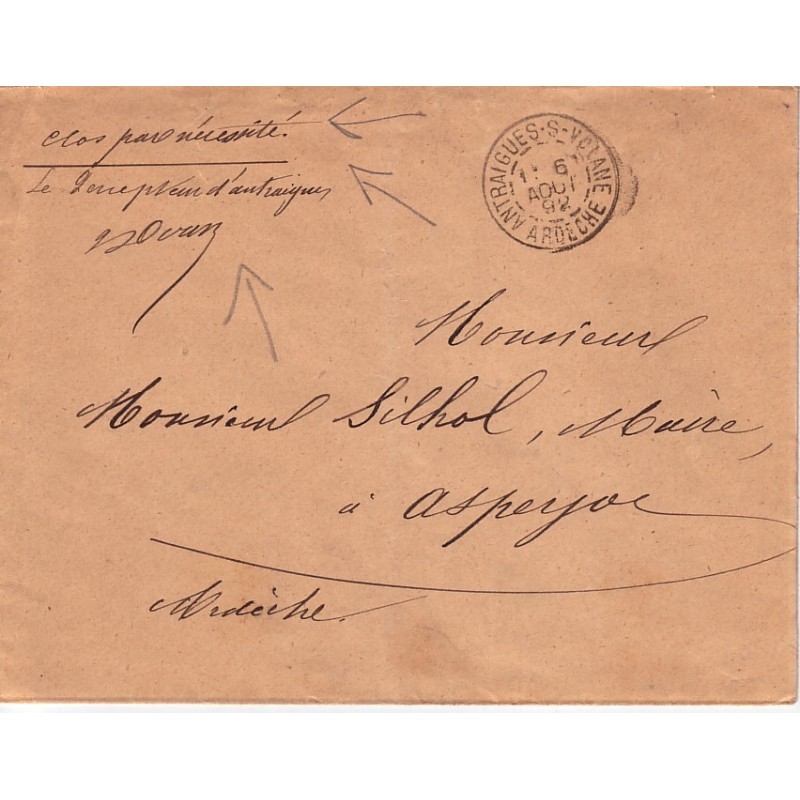 Clos par nécessité.
Le Percepteur d'antraigues
ANTRAIGUES-S-VOLANE
1E 6
AOUT
92
ARDÈCHE
Monsieur
Monsieur Silhol, Maire,
à Asperjoc
Ardèche.